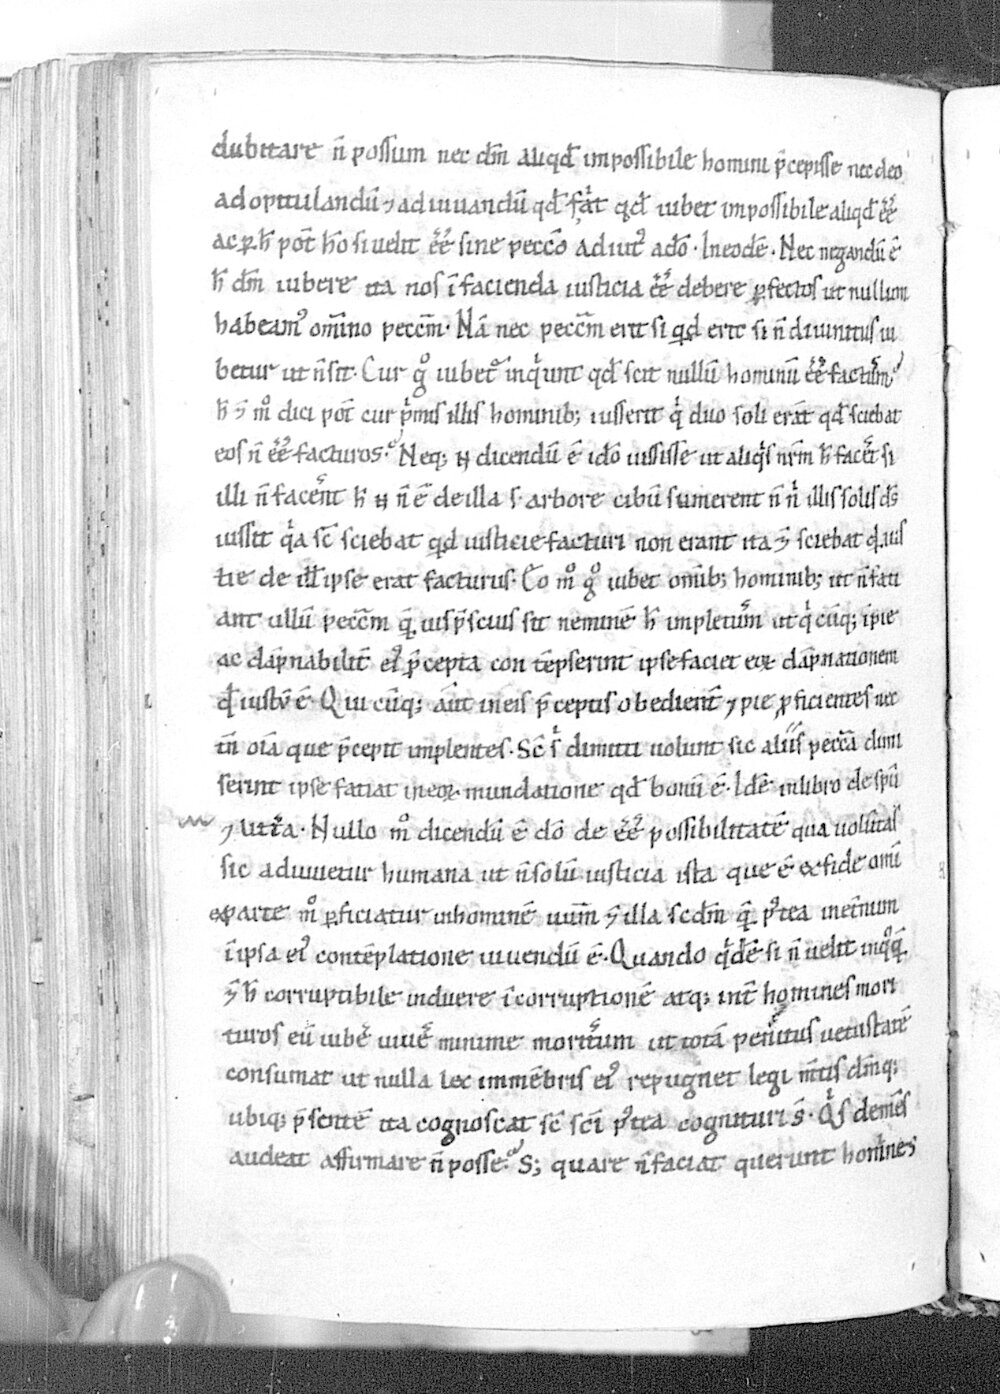 dubitare n̄ possum nec dm̄ aliqd̄ impossibile homini p̄cepisse nec deo
ad opitulandū ⁊ ad iuuandū qd̄ faͨt qd̄ iubet impossibile aliqd̄ ēē
ac ꝑ h̄ pot̄ hō si uelit ēē sine peccō adiutꝰ a dō. In eodē. Nec negandū ē
h̄ dm̄ iubere ita nos ī facienda iusticia ēē debere ꝑfectos ut nullum
habeamꝰ omīno pecc̄m. Nā nec pecc̄m erit si qd erit si n̄ diuinitus iu
betur ut n̄ sit. Cur gͦ iubet inqͥunt qd̄ scit nullū hominū ēē facturum
h̄ ⁊ mͦ dici pot̄ cur pͥmis illis hominib; iusserit qͥ duo soli erāt qd̄ sciebat
eos n̄ ēē facturos. Neq; n̄ dicendū ē idō iussisse ut aliqͥs nr̄m h̄ facet si
illi n̄ facent h̄ n̄ ē de illa s. arbore cibū sumerent n̄ nͥ illis solis ds̄
iussit qͥa sc̄ sciebat qd iusticie facturi non erant ita ⁊ sciebat qͥd ius
tie de ill̄ ipse erat facturus. Eo mͦ gͦ iubet omīb; hominib; ut n̄ fati
ant ullū pecc̄m qͣ uis p̄scius sit neminē h̄ impleturum ut qͥ cūq; īpie
ac dāpnabilit̄ eiꝰ p̄cepta con tēpserint ipse faciet eoꝝ dāpnationem
qd̄ iustū ē. Qui cūq; aūt in eis p̄ceptis obedient̄ ⁊ pie ꝓficientes nec
tn̄ oīa que p̄cepit implentes. Sc̄ sͥ dimitti uolunt sic aliis peccā dimi
serint ipse fatiat in eoꝝ mundatione qd̄ bonū ē. Idē in libro de spū
⁊ littͣa. Nullo mͦ dicendū ē dō de ēē possibilitatē qua uolūtas
sic adiuuetur humana ut n̄ solū iusticia ista que ē ex fide omī
ex parte mͦ ꝑficiatur in hominē uum̄ ⁊ illa scdm̄ qͣ pꝰtea inet̄num
ī ipsa eiꝰ contēplatione uiuendū ē. Quando qͥdē si n̄ uelit in qͦqͣ
⁊ h̄ corruptibile induere īcorruptionē atq; int̄ homines mori
turos eū iubē uiuē minime moriturum ut totā penͥtus uetustatē
consumat ut nulla lex in mēbris eiꝰ repugnet legi mt̄is dm̄q;
ubiq; p̄sentē ita cognoscat sc̄ scī pꝰtea cognituri s̄. Qͥs demēs
audeat affirmare n̄ posse. S; quare n̄ faciat querunt homines